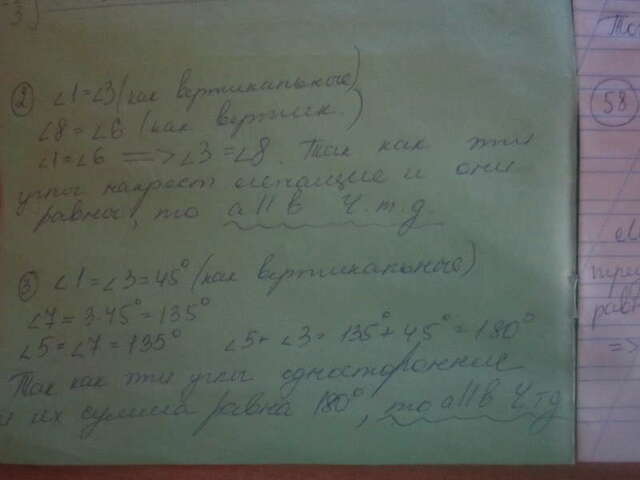 ② ∠1=∠3 (как вертикальные)
∠8=∠6 (как вертик.)
∠1=∠6 => ∠3=∠8. Так как эти
углы накрест лежащие и они
равны, то a||b Ч.т.д.
③ ∠1=∠3=45° (как вертикальные)
∠7=3·45°=135°
∠5=∠7=135° ∠5+∠3=135°+45°=180°
Так как эти углы односторонние
и их сумма равна 180°, то a||b Ч.тд
58
=>